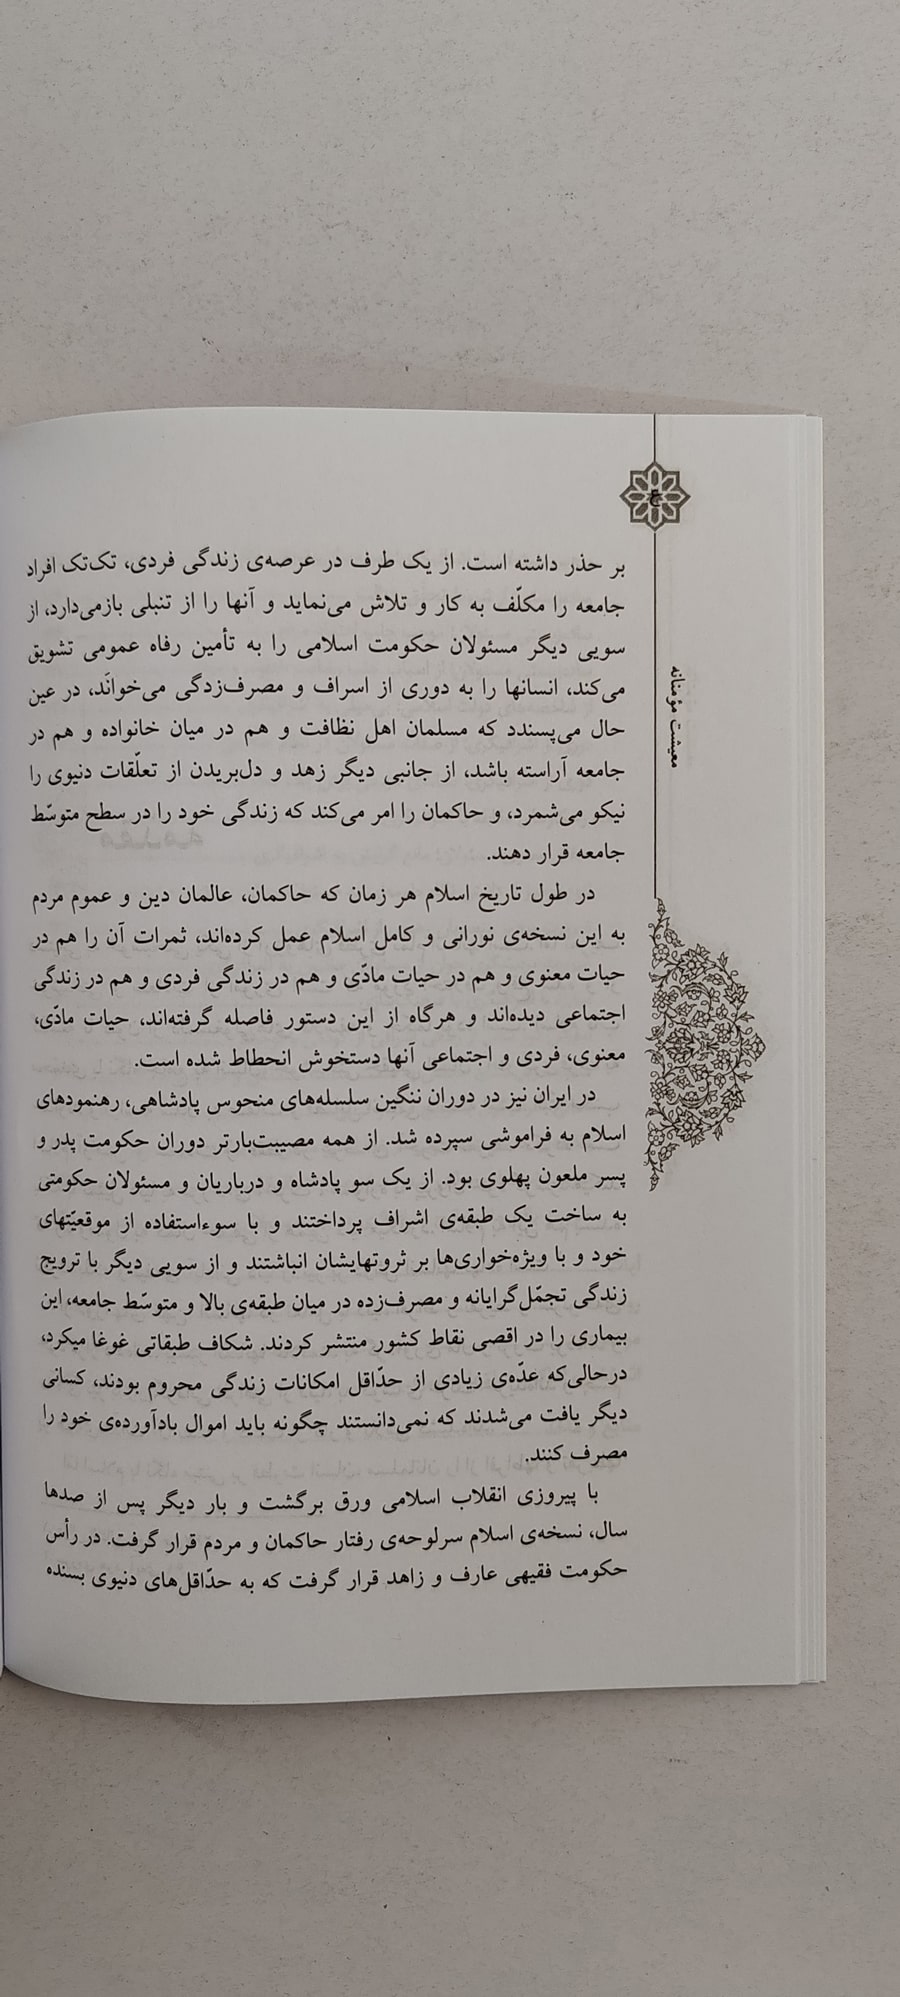 ع
معیشت مؤمنانه
بر حذر داشته است. از یک طرف در عرصه‌ی زندگی فردی، تک‌تک افراد
جامعه را مکلّف به کار و تلاش می‌نماید و آنها را از تنبلی بازمی‌دارد، از
سویی دیگر مسئولان حکومت اسلامی را به تأمین رفاه عمومی تشویق
می‌کند، انسانها را به دوری از اسراف و مصرف‌زدگی می‌خوانَد، در عین
حال می‌پسندد که مسلمان اهل نظافت و هم در میان خانواده و هم در
جامعه آراسته باشد، از جانبی دیگر زهد و دل‌بریدن از تعلّقات دنیوی را
نیکو می‌شمرد، و حاکمان را امر می‌کند که زندگی خود را در سطح متوسّط
جامعه قرار دهند.
در طول تاریخ اسلام هر زمان که حاکمان، عالمان دین و عموم مردم
به این نسخه‌ی نورانی و کامل اسلام عمل کرده‌اند، ثمرات آن را هم در
حیات معنوی و هم در حیات مادّی و هم در زندگی فردی و هم در زندگی
اجتماعی دیده‌اند و هرگاه از این دستور فاصله گرفته‌اند، حیات مادّی،
معنوی، فردی و اجتماعی آنها دستخوش انحطاط شده است.
در ایران نیز در دوران ننگین سلسله‌های منحوس پادشاهی، رهنمودهای
اسلام به فراموشی سپرده شد. از همه مصیبت‌بارتر دوران حکومت پدر و
پسر ملعون پهلوی بود. از یک سو پادشاه و درباریان و مسئولان حکومتی
به ساخت یک طبقه‌ی اشراف پرداختند و با سوءاستفاده از موقعیّتهای
خود و با ویژه‌خواری‌ها بر ثروتهایشان انباشتند و از سویی دیگر با ترویج
زندگی تجمّل‌گرایانه و مصرف‌زده در میان طبقه‌ی بالا و متوسّط جامعه، این
بیماری را در اقصی نقاط کشور منتشر کردند. شکاف طبقاتی غوغا میکرد،
درحالی‌که عدّه‌ی زیادی از حدّاقل امکانات زندگی محروم بودند، کسانی
دیگر یافت می‌شدند که نمی‌دانستند چگونه باید اموال بادآورده‌ی خود را
مصرف کنند.
با پیروزی انقلاب اسلامی ورق برگشت و بار دیگر پس از صدها
سال، نسخه‌ی اسلام سرلوحه‌ی رفتار حاکمان و مردم قرار گرفت. در رأس
حکومت فقیهی عارف و زاهد قرار گرفت که به حدّاقل‌های دنیوی بسنده